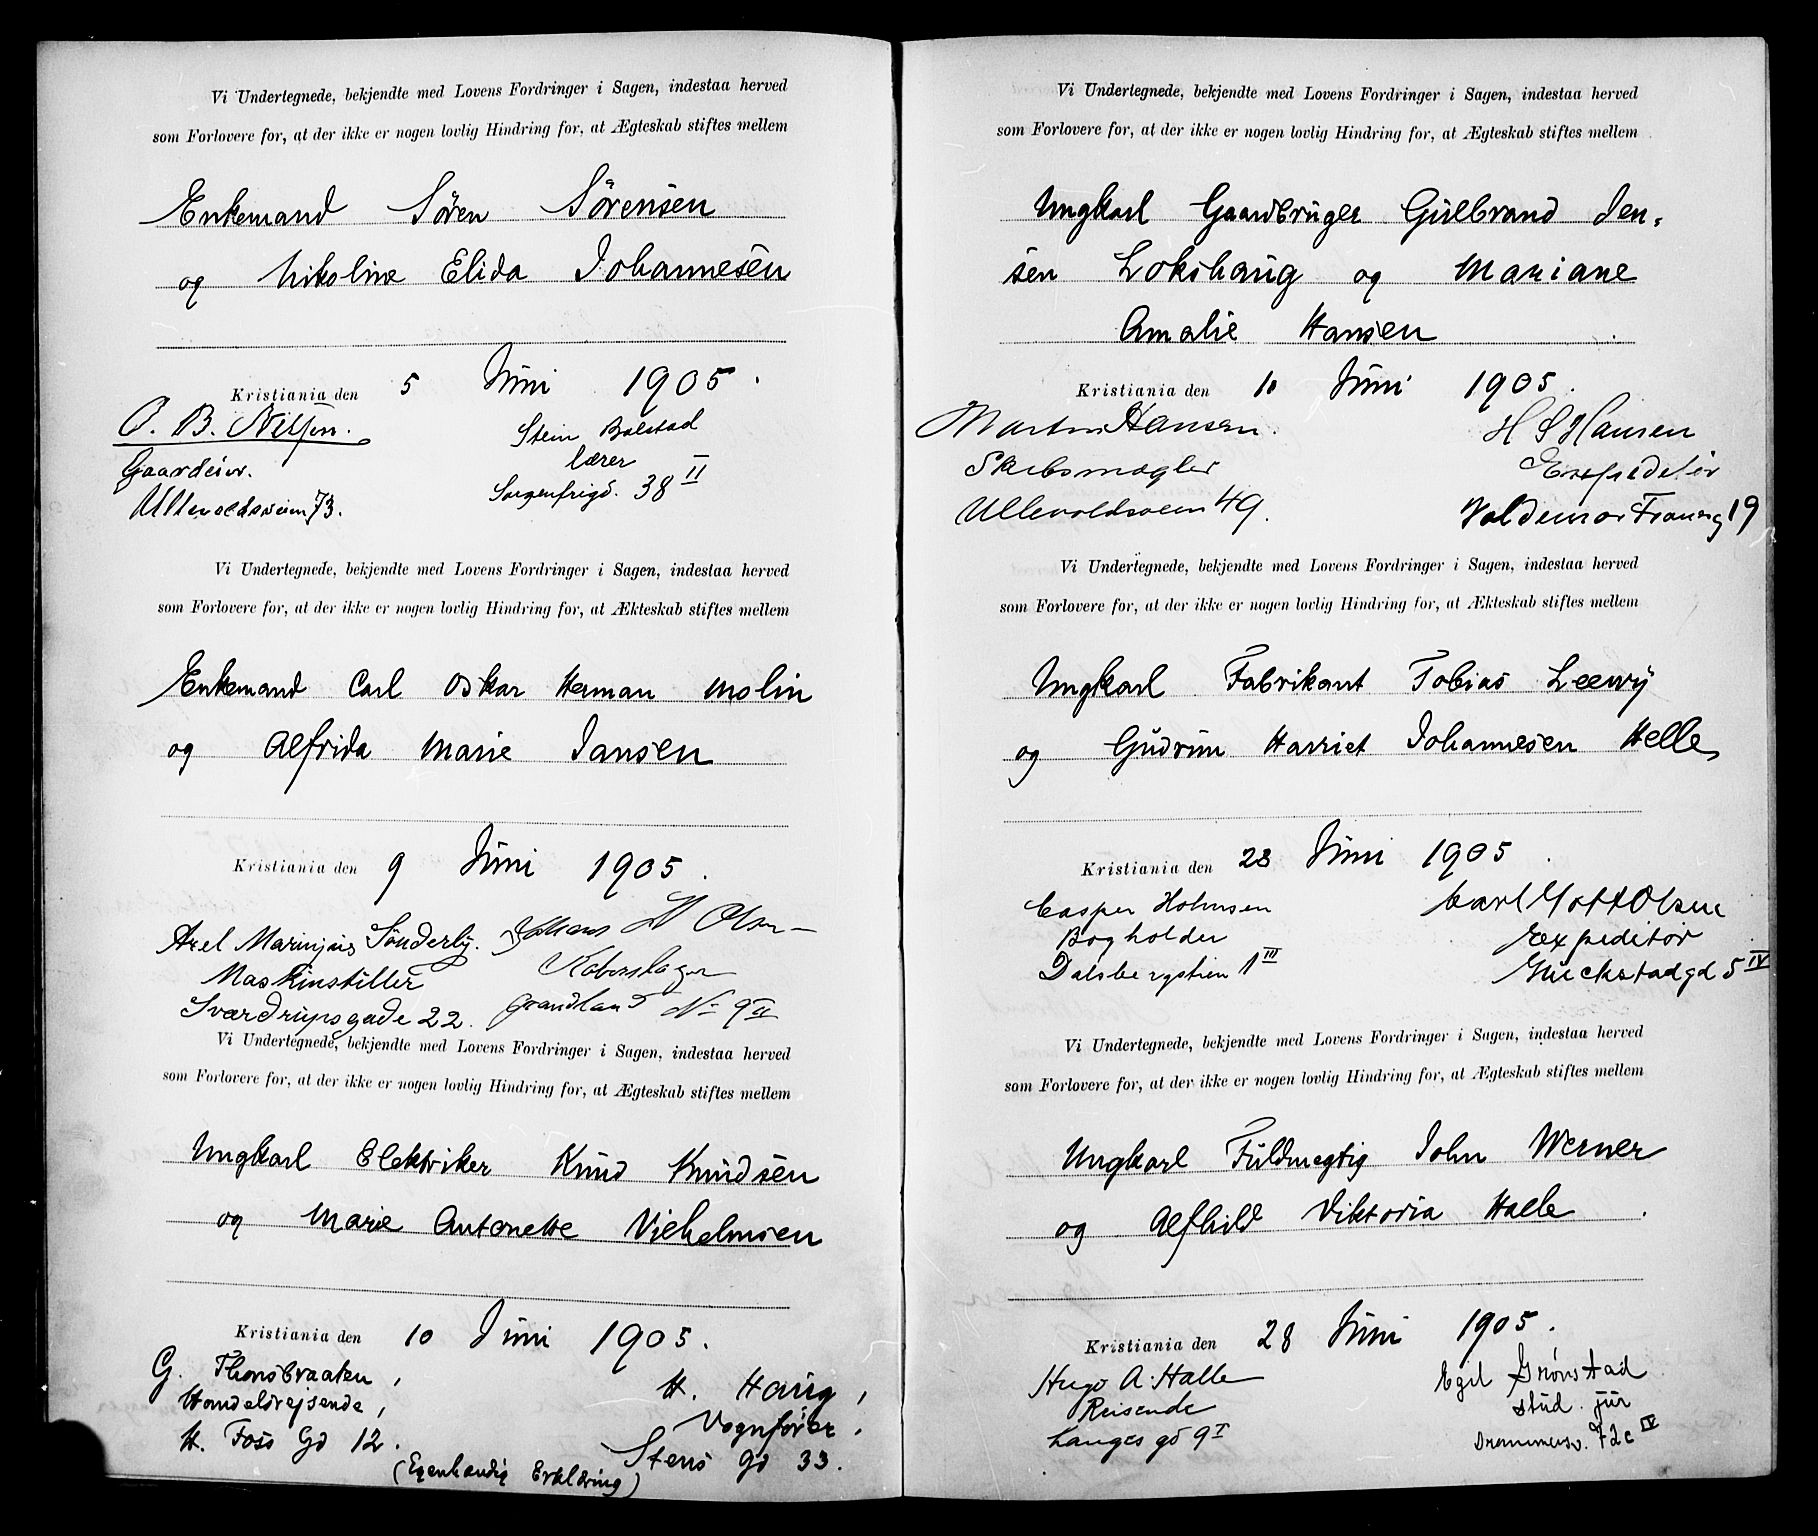 Vi Undertegnede, bekjendte med Lovens Fordringer i Sagen, indestaa herved
som Forlovere for, at der ikke er nogen lovlig Hindring for, at Ægteskab stiftes mellem
Enkemand Sören Sörensen
og Nikoline Elida Johannesen
Kristiania den 5 Juni 1905.
O. B. Nilsen.
Gaardeier.
Ullevoldsveien 73.
Stein Bolstad
lærer
Sorgenfrigd. 38 II
Vi Undertegnede, bekjendte med Lovens Fordringer i Sagen, indestaa herved
som Forlovere for, at der ikke er nogen lovlig Hindring for, at Ækteskab stiftes mellem
Enkemand Carl Oskar Herman Molin
og Alfrida Marie Jansen
Kristiania den 9 Juni 1905.
Axel Marinius Sönderby.
Maskinstiller
Sværdrupsgade 22.
Johans H Olsen
Koberslager
Grandland No 9 II
Vi Undertegnede, bekjendte med Lovens Fordringer i Sagen, indestaa herved
som Forlovere for, at der ikke er nogen lovlig Hindring for, at Ægteskab stiftes mellem
Ungkarl Elektriker Knud Knudsen
og Marie Antonette Vielhelmsen
Kristiania den 10 Juni 1905.
G. Thonsbraaten,
Handelsrejsende,
H. Foss Gd 12.
H. Haug,
Vognfører,
Stens Gd 33.
(Egenhændig Erklæring)
Vi Undertegnede, bekjendte med Lovens Fordringer i Sagen, indestaa herved
som Forlovere for, at der ikke er nogen lovlig Hindring for, at Ægteskab stiftes mellem
Ungkarl Gaardbruger Gulbrand Jen-
sen Lokshaug og Mariane
Amalie Hansen
Kristiania den 10 Juni 1905.
Martin Hansen.
Skibsmægler
Ullevoldsveien 49.
H S Hansen
Expeditör
Valdemar Thranesg 19
Vi Undertegnede, bekjendte med Lovens Fordringer i Sagen, indestaa herved
som Forlovere for, at der ikke er nogen lovlig Hindring for, at Ækteskab stiftes mellem
Ungkarl Fabrikant Tobias Leewy
og Gudrun Harriet Johannesen Helle
Kristiania den 28 Juni 1905.
Casper Holmsen
Bogholder
Dalsbergstien 1 III
Carl Gott Olsen
Expeditör
Gluckstadgd 5 IV
Vi Undertegnede, bekjendte med Lovens Fordringer i Sagen, indestaa herved
som Forlovere for, at der ikke er nogen lovlig Hindring for, at Ægteskab stiftes mellem
Ungkarl Fuldmegtig John Werner
og Alfhild Viktoria Halle
Kristiania den 28 Juni 1905.
Hugo A. Halle
Reisende
Langes gd 9 I
Egil Grønstad
stud. jur
Drammensv. 72c IV